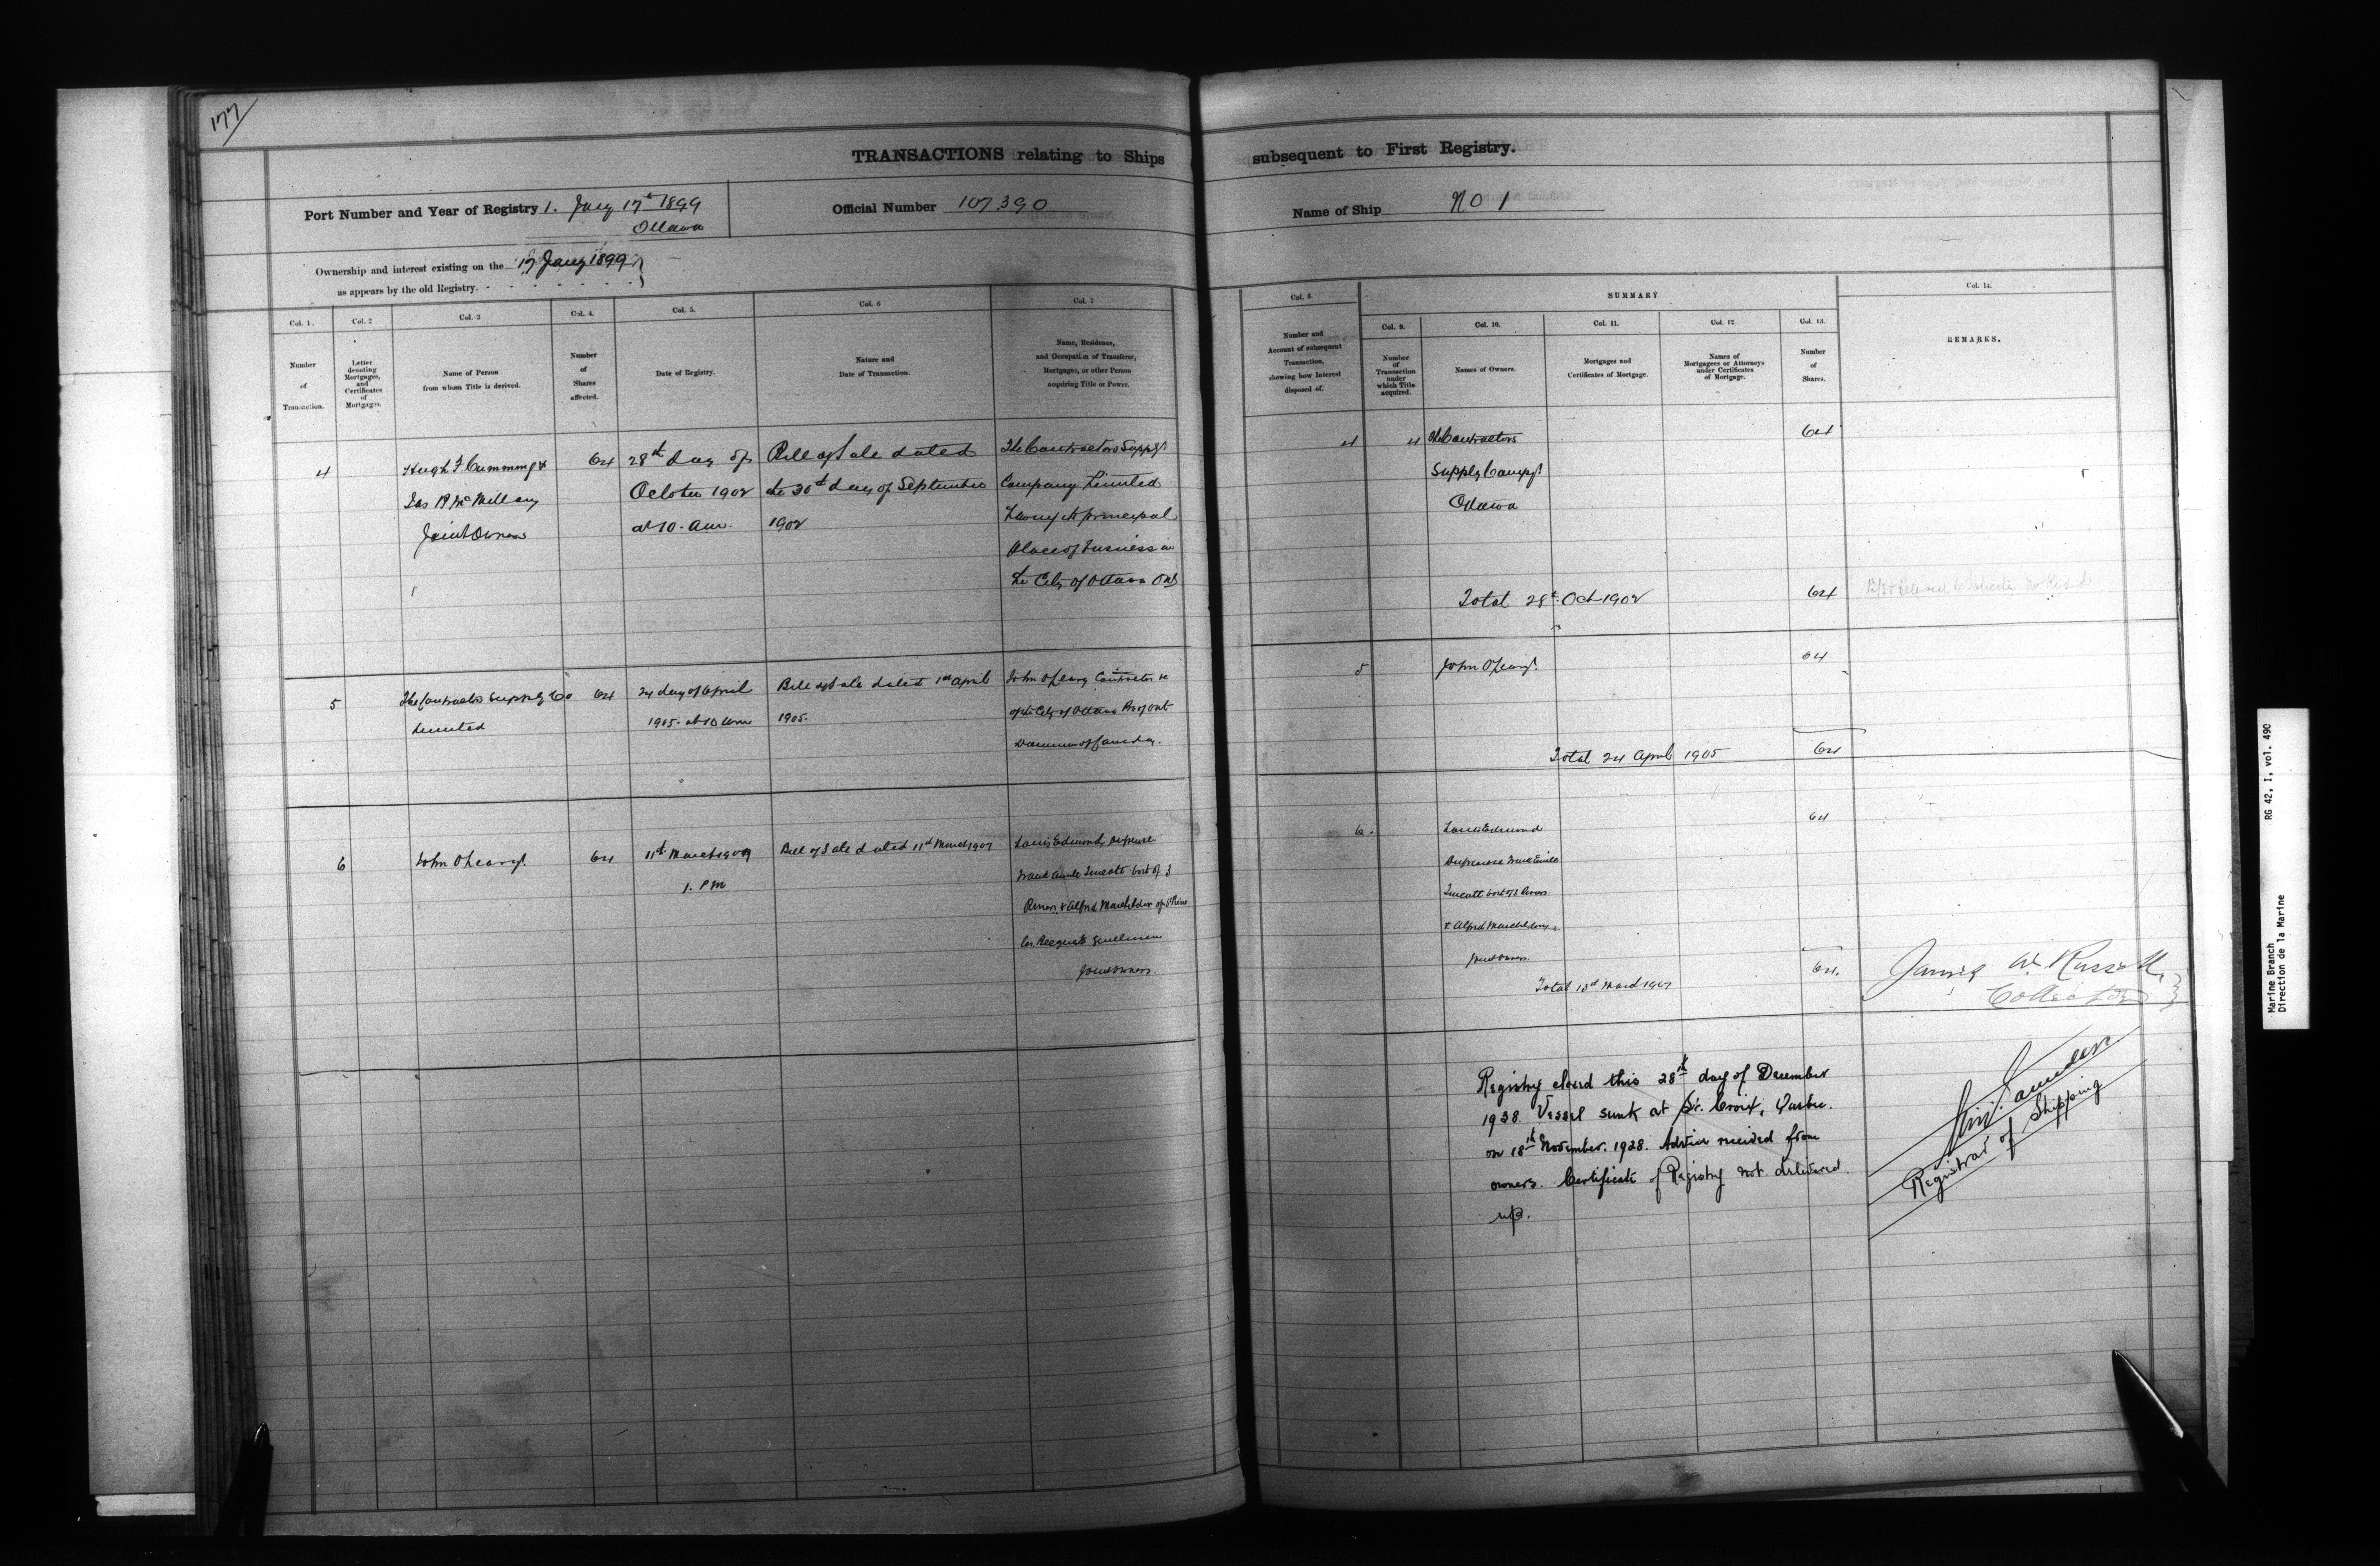 177
TRANSACTIONS relating to Ships subsequent to First Registry.
Port Number and Year of Registry 1. Jany 17th 1899
Ottawa
Official Number 107,390
Name of Ship No 1
Ownership and interest existing on the 17 Jany 1899
as appears by the old Registry.
Col. 1.
Number
of
Transaction.
Col. 2
Letter
denoting
Mortgages,
and
Certificates
of
Mortgages.
Col. 3
Name of Person
from whom Title is derived.
Col. 4.
Number
of
Shares
affected.
Col. 5.
Date of Registry.
Col. 6
Nature and
Date of Transaction.
Col. 7
Name, Residence,
and Occupation of Transferee,
Mortgagee, or other Person
acquiring Title or Power.
Col. 8.
Number and
Account of subsequent
Transaction,
showing how Interest
disposed of.
SUMMARY
Col. 9.
Number
of
Transaction
under
which Title
acquired.
Col. 10.
Names of Owners.
Col. 11.
Mortgages and
Certificates of Mortgage.
Col. 12
Names of
Mortgagees or Attorneys
under Certificates
of Mortgage.
Col. 13.
Number
of
Shares.
Col. 14.
REMARKS.
4
Hugh F Cumming &
Jas R McMillan
Joint Owners
64
28th day of
October 1902
at 10. am.
Bill of Sale dated
the 30th day of September
1902
The Contractors Supply
Company Limited
having its principal
place of business in
the City of Ottawa Ont
4
4
The Contractors
Supply Compy
Ottawa
64
Total 28th Oct 1902
64
5
The Contractors Supply Co
Limited
64
24 day of April
1905. at 10 am
Bill of Sale dated 1st April
1905.
John OLeary Contractor
of the City of Ottawa Prov of Ont
Dominion of Canada.
5
John OLeary
64
Total 24 April 1905
64
6
John OLeary
64
11th March 1907
1. PM
Bill of Sale dated 11th March 1907
Louis Edmond
Frank
Rivers & Alfred
Gentlemen
Joint owners.
6.
Louis Edmond
& Alfred
Joint owners.
64
Total March 1907
64.
James W. Russell,
Collector
Registry closed this 28th day of December
1928. Vessel sunk at St. Croix, Quebec.
on 18th November. 1928. Advice received from
owners. Certificate of Registry not delivered
up.
Saunders
Registrar of Shipping
Marine Branch RG 42, I, vol. 490
Direction de la Marine